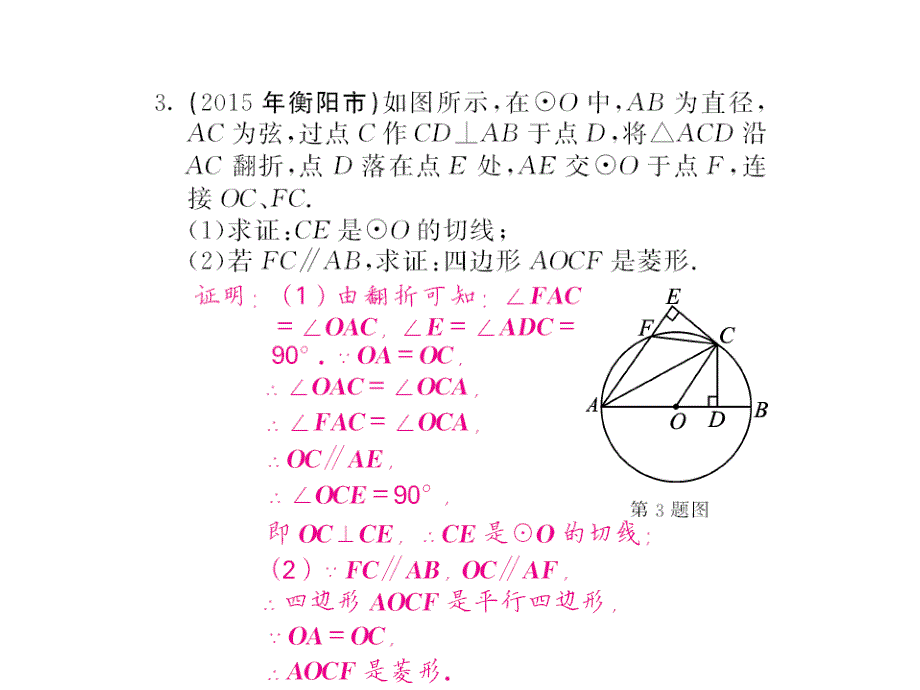 3. (2015年衡阳市)如图所示,在⊙O中,AB为直径,
AC为弦,过点C作CD⊥AB于点D,将△ACD沿
AC翻折,点D落在点E处,AE交⊙O于点F,连
接OC、FC.
(1)求证:CE是⊙O的切线;
(2)若FC∥AB,求证:四边形AOCF是菱形.
证明:(1)由翻折可知:∠FAC
=∠OAC,∠E=∠ADC=
90°.∵OA=OC,
∴∠OAC=∠OCA,
∴∠FAC=∠OCA,
∴OC∥AE,
∴∠OCE=90°,
即OC⊥CE,∴CE是⊙O的切线;
(2)∵FC∥AB,OC∥AF,
∴四边形AOCF是平行四边形,
∵OA=OC,
∴AOCF是菱形.
E
F
C
A
O
D
B
第3题图